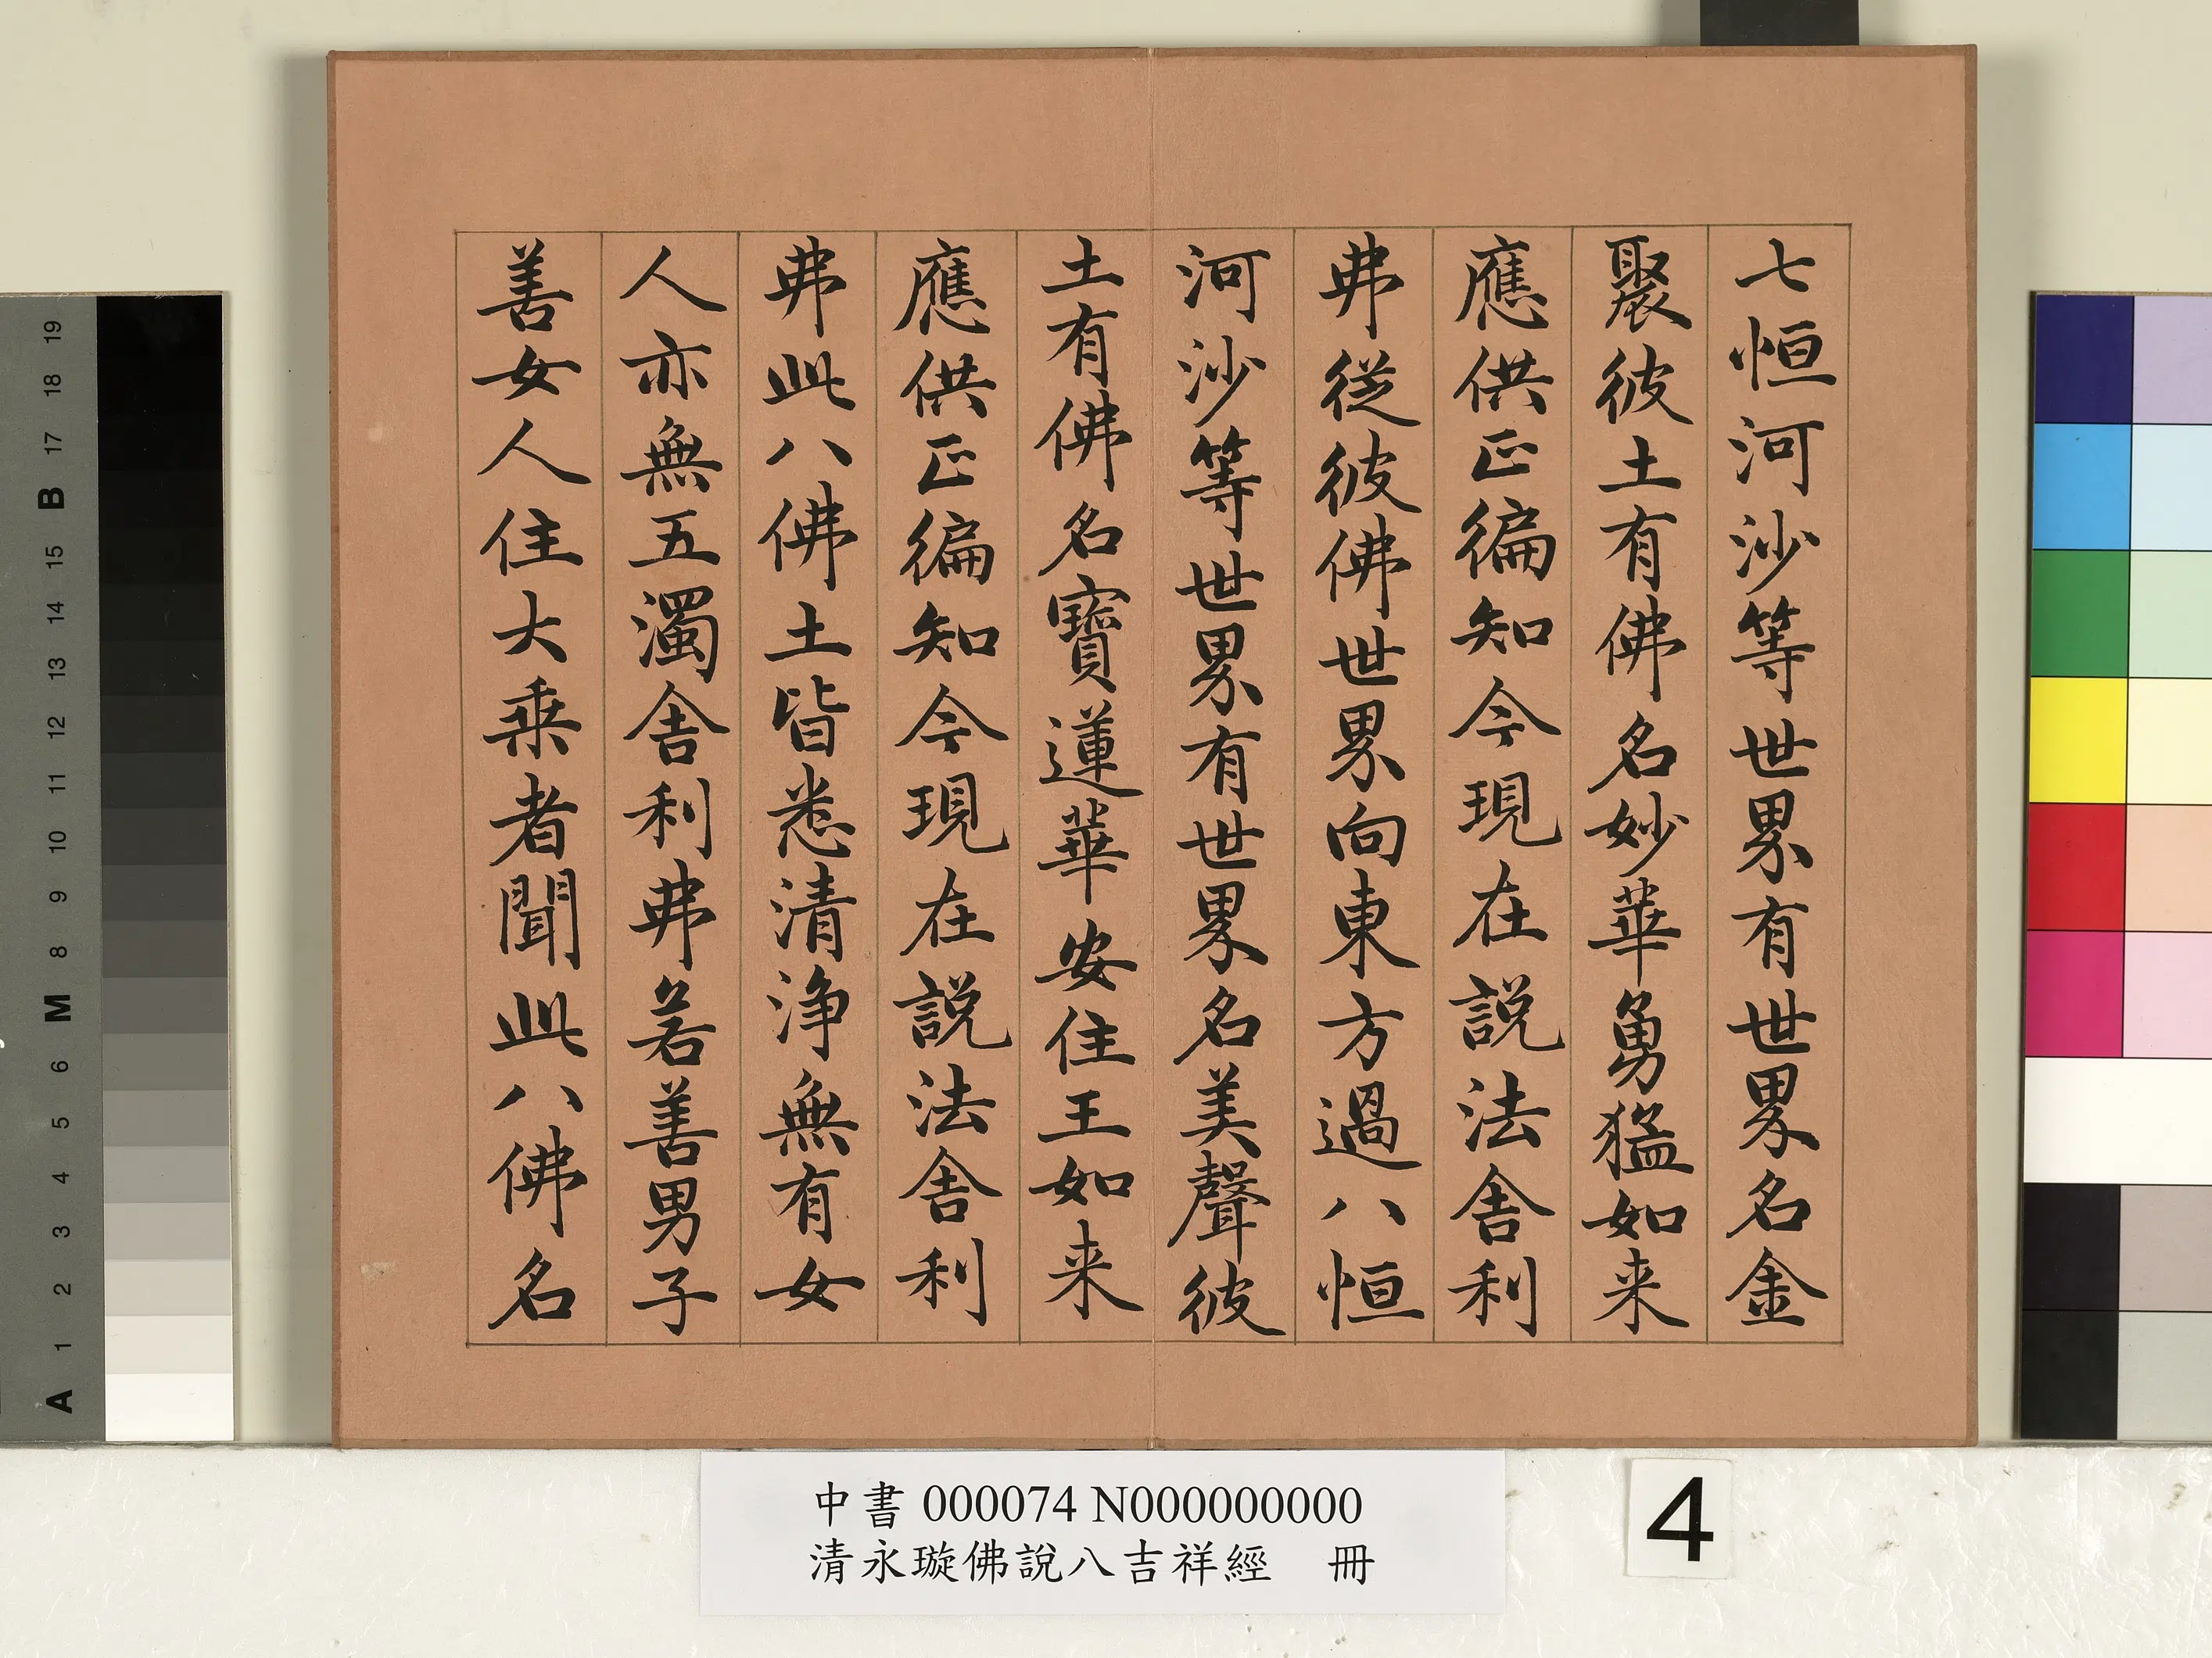 七恒河沙等世界有世界名金
聚彼土有佛名妙華勇猛如来
應供正徧知今現在説法舎利
弗從彼佛世界向東方過八恒
河沙等世界有世界名美聲彼
土有佛名寶蓮華安住王如来
應供正徧知今現在説法舎利
弗此八佛土皆悉清浄無有女
人亦無五濁舎利弗若善男子
善女人住大乗者聞此八佛名
中書 000074 N000000000
清永璇佛說八吉祥經 冊
4
19
18
17
B
15
14
13
12
11
10
9
8
M
6
5
4
3
2
1
A